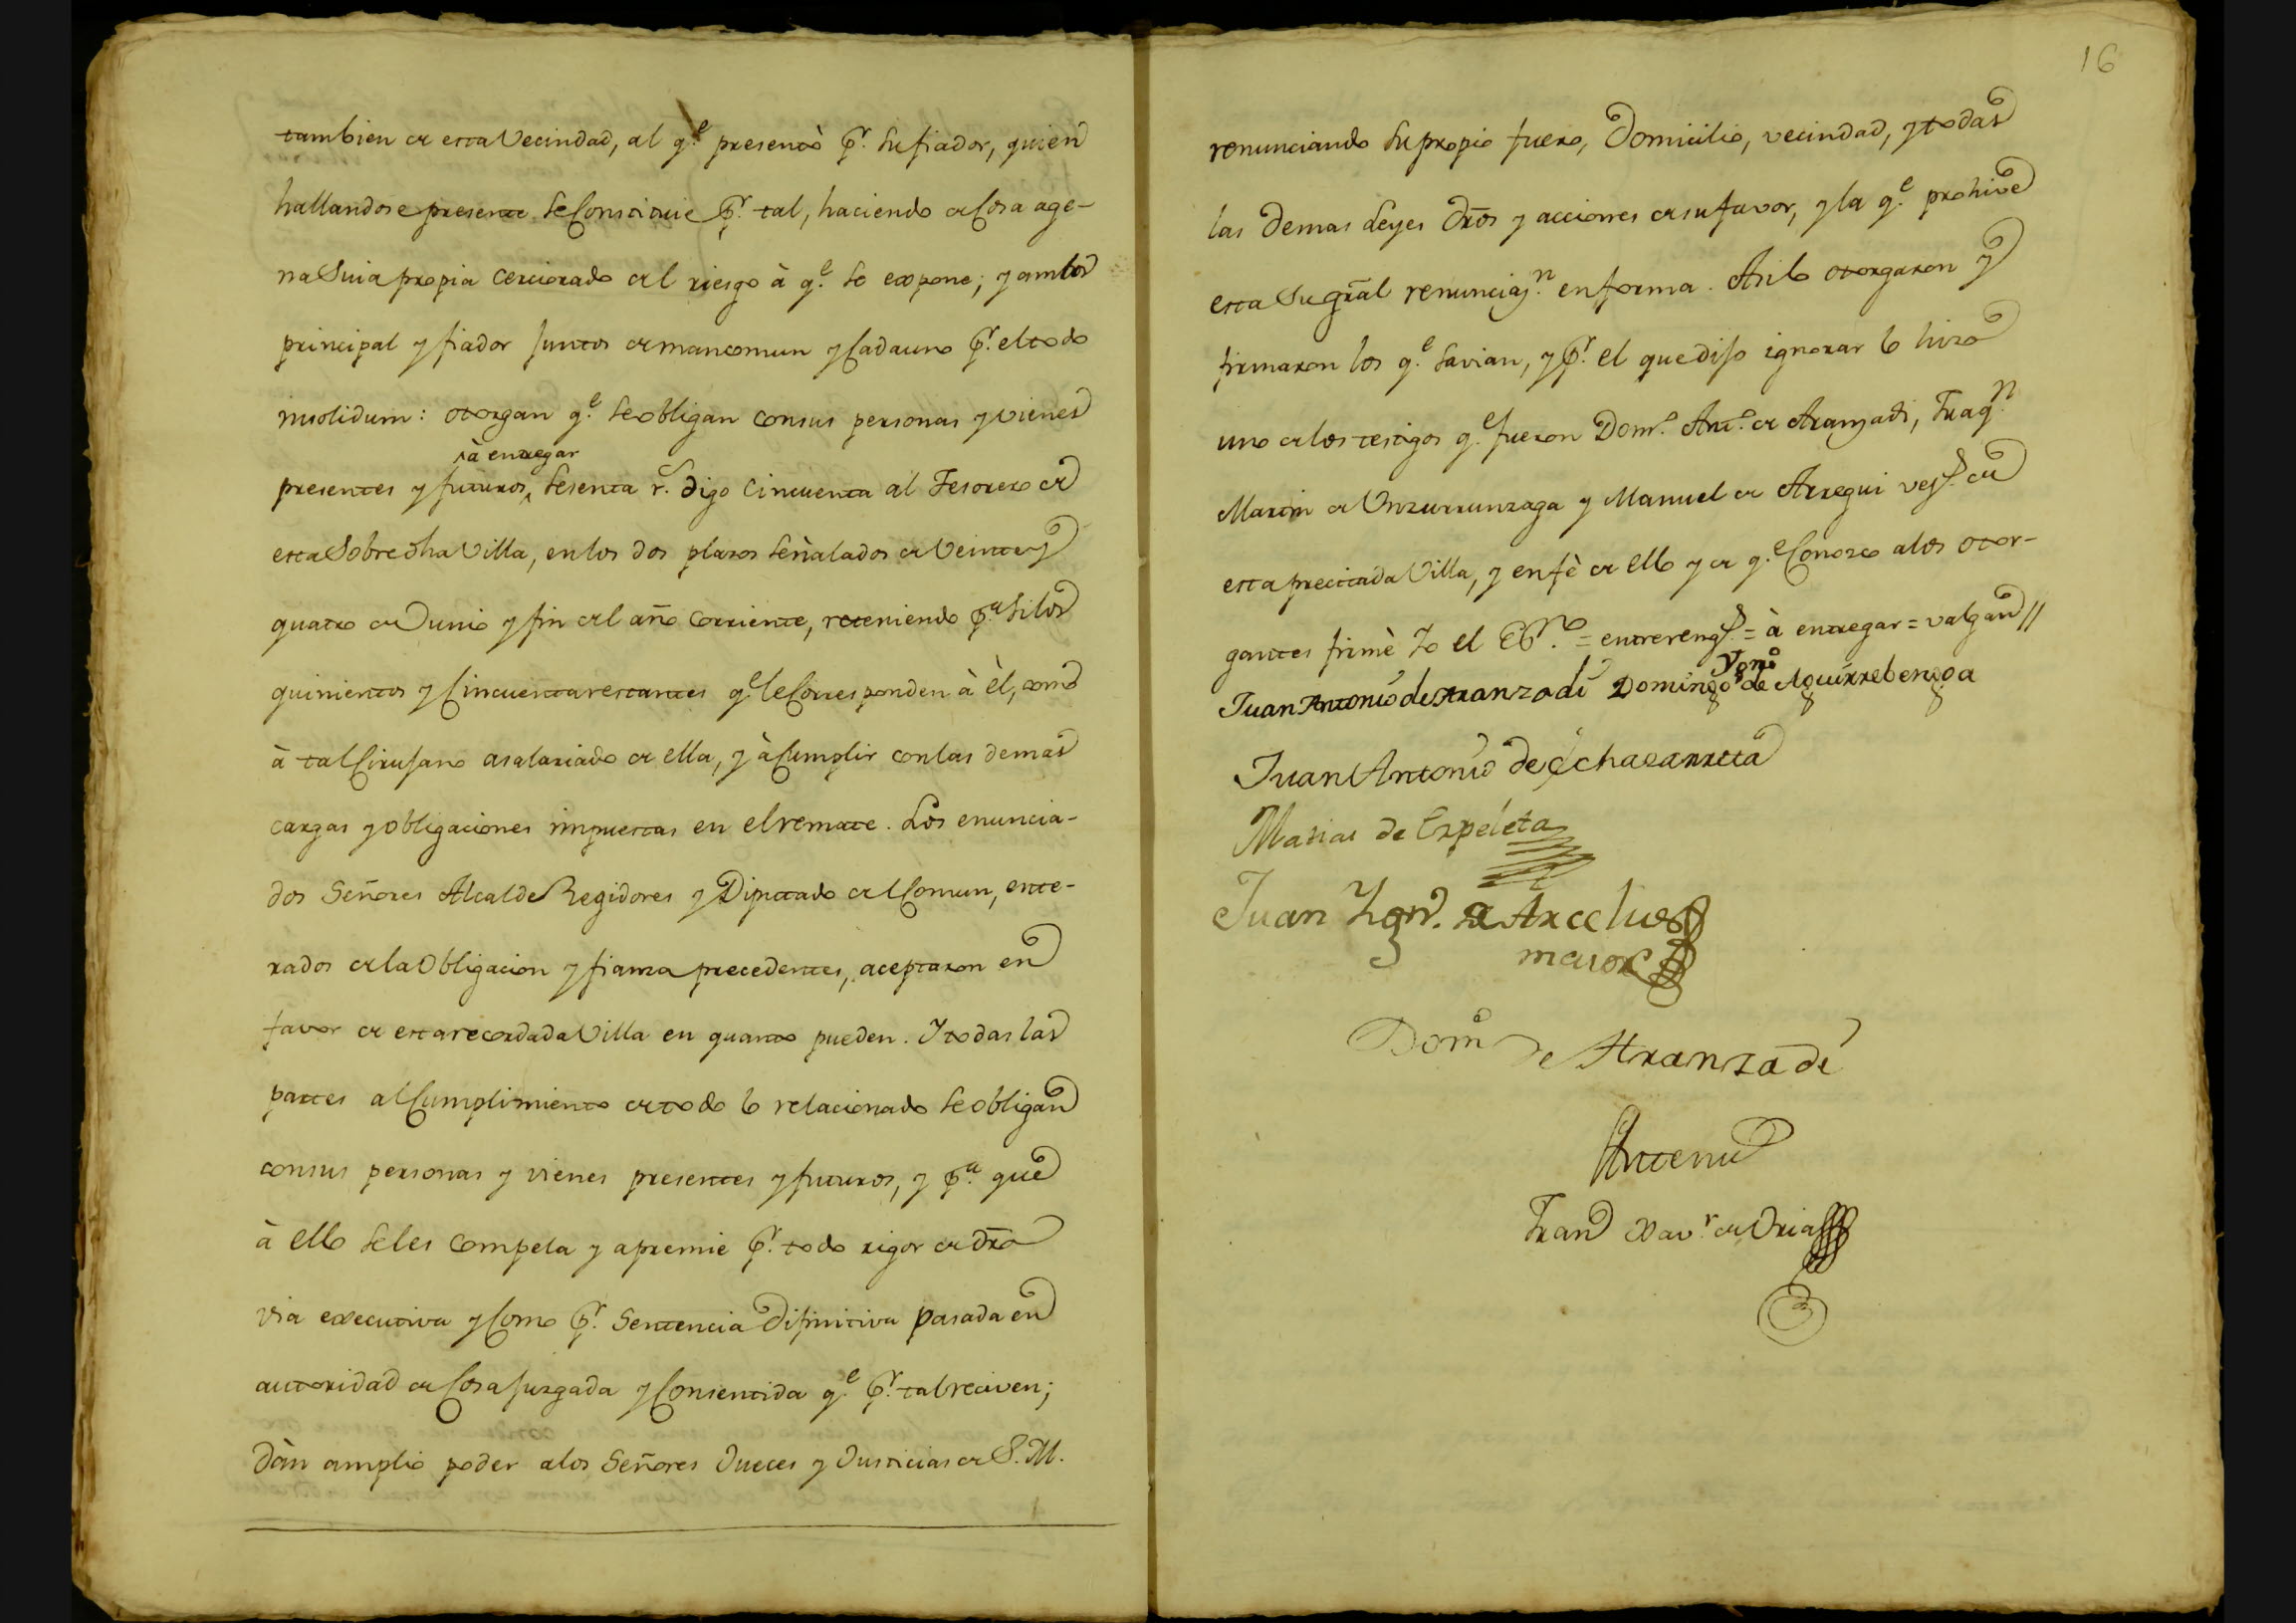 tambien de esta Vecindad, al q.e presentò p.r su fiador, quien
hallandose presente se Constituie p.r tal, haciendo de Cosa age-
na Suia propia cerciorado del riesgo à q.e se expone; y ambos
principal y fiador juntos de mancomun y Cada uno p.r el todo
insolidum: otorgan q.e se obligan con sus personas y vienes
à entregar
presentes y futuros, sesenta r.s digo Cincuenta al Tesorero de
esta Sobredha Villa, en los dos plazos señalados de Veinte y
quatro de Junio y fin del año Corriente, reteniendo p.a si los
quinientos y Cincuenta restantes q.e le Corresponden à èl, como
à tal Cirujano asalariado de ella, y à Cumplir con las demas
cargas y obligaciones impuestas en el remate. Los enuncia-
dos Señores Alcalde Regidores y Diputado del Comun, ente-
rados de la Obligacion y fianza precedentes, aceptaron en
favor de esta recordada Villa en quanto pueden. Y todas las
partes al Cumplimiento de todo lo relacionado se obligan
con sus personas y vienes presentes y futuros, y p.a que
à ello se les Compela y apremie p.r todo rigor de dro
via executiva y Como p.r Sentencia Difinitiva pasada en
autoridad de Cosa juzgada y Consentida q.e p.r tal reciven;
dàn amplio poder a los Señores Jueces y Justicias de S. M.
16
renunciando su propio fuero, Domicilio, vecindad, y todas
las demas Leyes dros y acciones de su favor, y la q.e prohive
esta Su gral renunciaz.n en forma. Asi lo otorgaron y
firmaron los q.e savian, y p.r el que dijo ignorar lo hizo
uno de los testigos q.e fueron Dom.o Ant.o de Aranzadi, Fraq.n
Martin de Unzurrunzaga y Manuel de Arregui vez.s de
esta precitada Villa, y en fè de ello y de q.e Conozco a los otor-
gantes firmè Yo el Es.no = entrereng.s = à entregar = valgan //
Juan Antonio de Aranzadi Domingo Ygn.o de Aguirrebengoa
Juan Antonio de Echazarreta
Matias de Expeleta
Juan Ygn.o de Arcelus
maior
Dom.o de Aranzadi
Antemi
Fran.co Xav.r de Oria